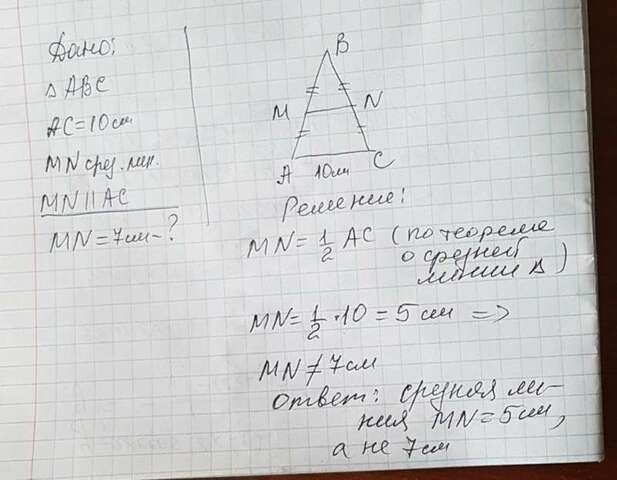 Дано:
△ ABC
AC=10см
MN сред. лин.
MN || AC
MN = 7см-?
B
M
N
A
10см
C
Решение:
MN = 1/2 AC (по теореме
о средней
линии △)
MN = 1/2 · 10 = 5 см =>
MN ≠ 7см
Ответ: средняя ли-
ния MN = 5см,
а не 7см